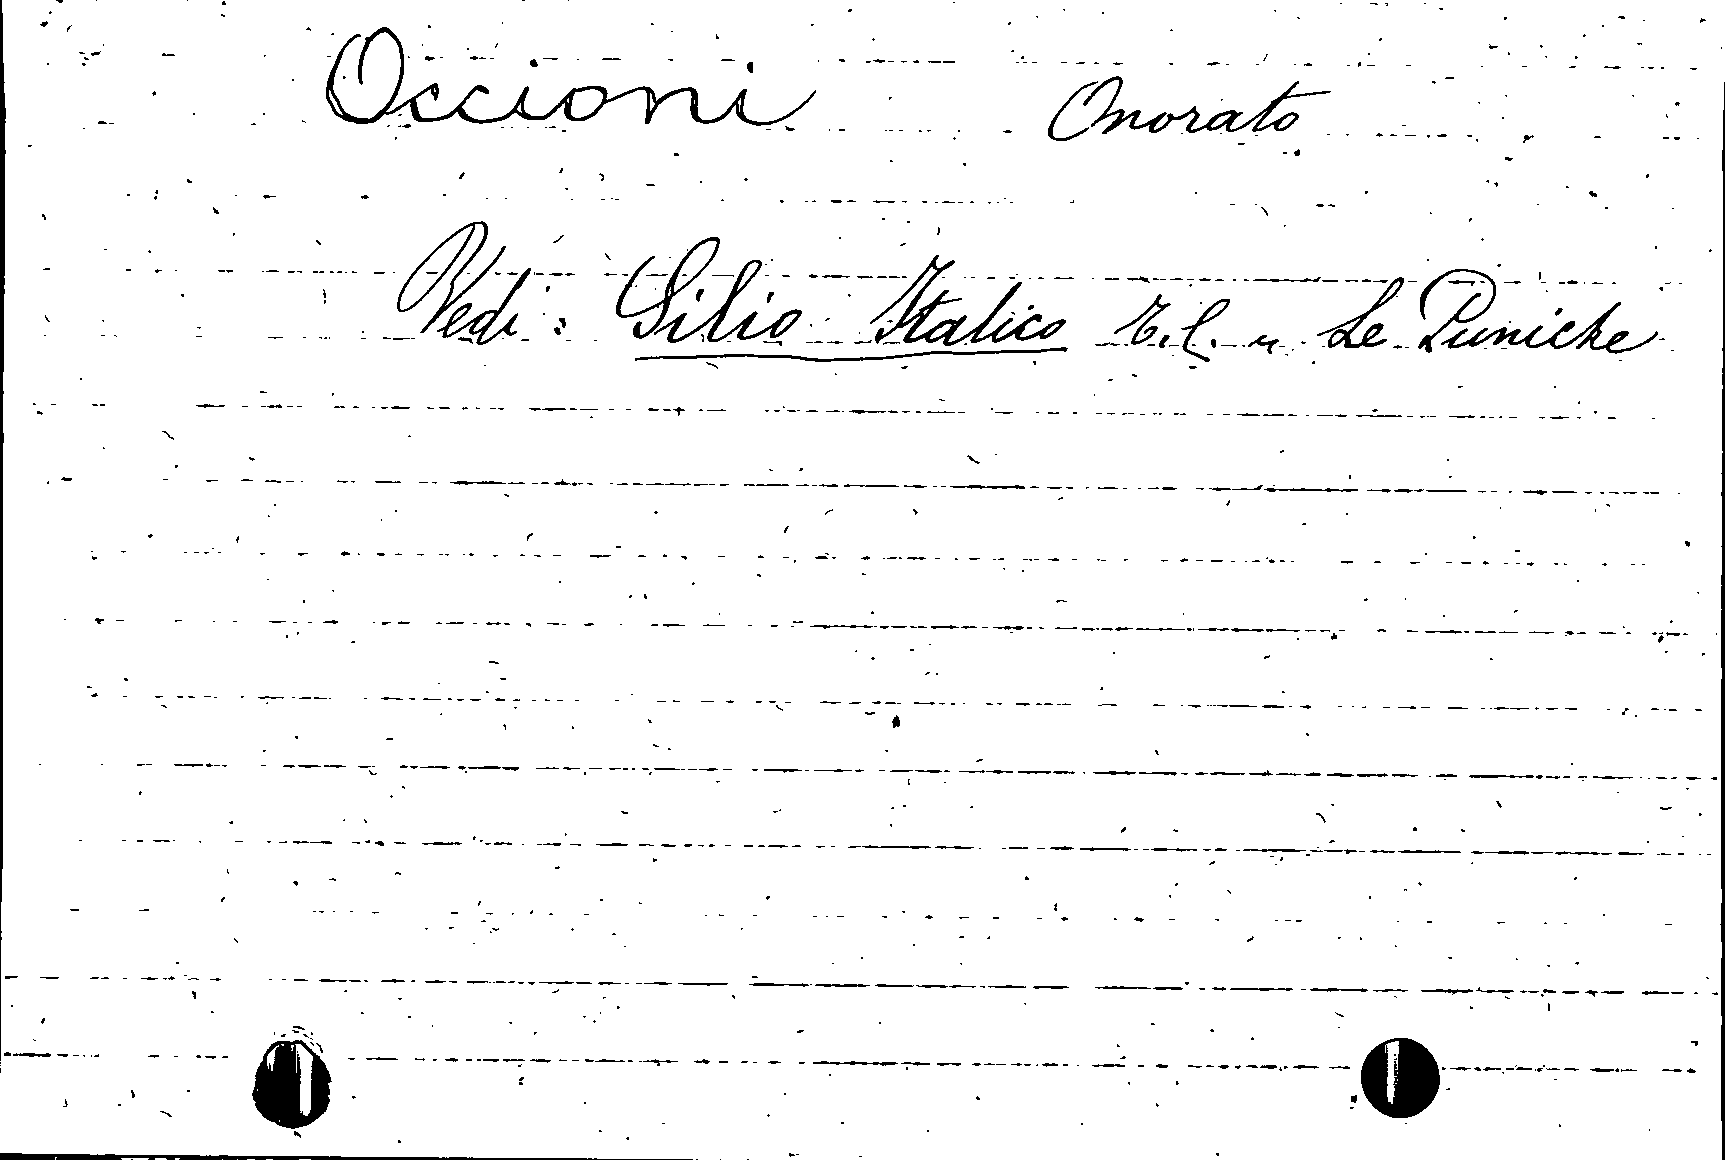 Occioni Onorato
Vedi: Silio Italico T.C. „ Le Puniche